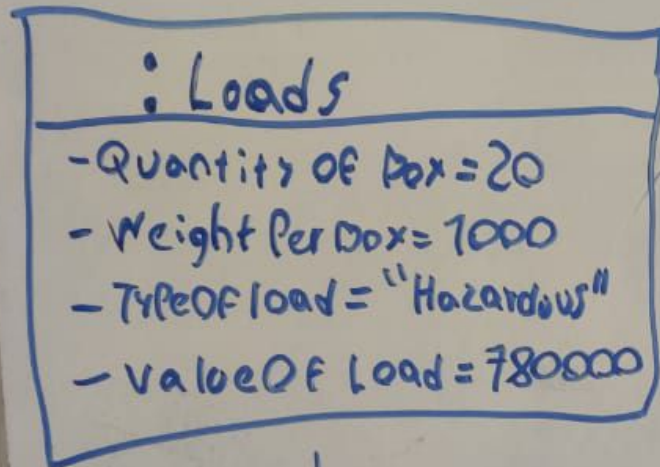 : Loads
-Quantity Of Box=20
- Weight Per Box= 1000
- TypeOf load = "Hazardous"
- ValueOf Load = 780000